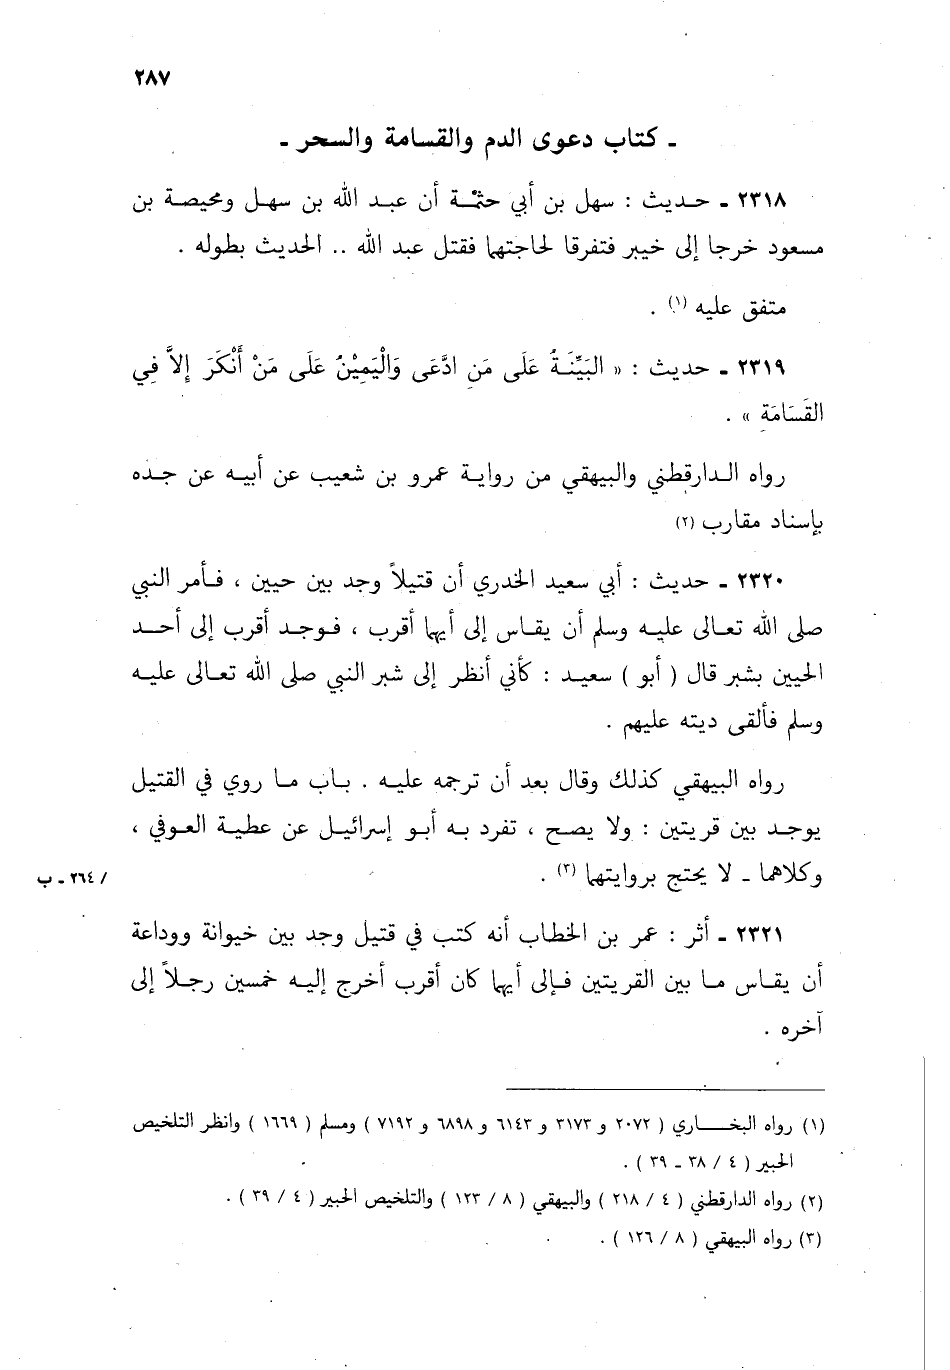 ٢٨٧
ـ كتاب دعوى الدم والقسامة والسحر ـ
٢٣١٨ ـ حديث : سهل بن أبي حثمة أن عبد الله بن سهل ومحيصة بن
مسعود خرجا إلى خيبر فتفرقا لحاجتهما فقتل عبد الله .. الحديث بطوله .
متفق عليه (١) .
٢٣١٩ ـ حديث : « البَيِّنَةُ عَلَى مَنِ ادَّعَى وَالْيَمِيْنُ عَلَى مَنْ أَنْكَرَ إِلاَّ فِي
القَسَامَةِ » .
رواه الدارقطني والبيهقي من رواية عمرو بن شعيب عن أبيه عن جده
بإسناد مقارب (٢)
٢٣٢٠ ـ حديث : أبي سعيد الخدري أن قتيلاً وجد بين حيين ، فأمر النبي
صلى الله تعالى عليه وسلم أن يقاس إلى أيهما أقرب ، فوجد أقرب إلى أحد
الحيين بشبر قال ( أبو ) سعيد : كأني أنظر إلى شبر النبي صلى الله تعالى عليه
وسلم فألقى ديته عليهم .
رواه البيهقي كذلك وقال بعد أن ترجمه عليه . باب ما روي في القتيل
يوجد بين قريتين : ولا يصح ، تفرد به أبو إسرائيل عن عطية العوفي ،
وكلاهما ـ لا يحتج بروايتهما (٣) .
/ ٢٦٤ ـ ب
٢٣٢١ ـ أثر : عمر بن الخطاب أنه كتب في قتيل وجد بين خيوانة ووداعة
أن يقاس ما بين القريتين فإلى أيهما كان أقرب أخرج إليه خمسين رجلاً إلى
آخره .
(١) رواه البخاري ( ٢٠٧٢ و ٣١٧٣ و ٦١٤٣ و ٦٨٩٨ و ٧١٩٢ ) ومسلم ( ١٦٦٩ ) وانظر التلخيص
الحبير ( ٤ / ٣٨ ـ ٣٩ ) .
(٢) رواه الدارقطني ( ٤ / ٢١٨ ) والبيهقي ( ٨ / ١٢٣ ) والتلخيص الحبير ( ٤ / ٣٩ ) .
(٣) رواه البيهقي ( ٨ / ١٢٦ ) .